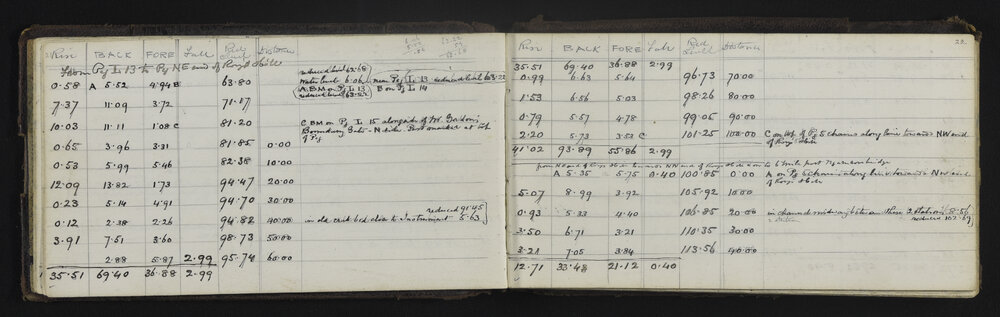 Rise BACK FORE Fall Red Level Distance
From Peg L 13 to Peg NE end of
reduced level 62.68
63.80
0.58 A 5.52 4.94 B
A.B.M on Peg L 13 B on Peg L 14
7.37 11.09 3.72 71.17
10.03 11.11 1.08 C 81.20
C BM on Peg L 15 alongside of Mr
Boundary Gate - N side. Peg marked at top
of Peg
0.65 3.96 3.31 81.85 0.00
0.53 5.99 5.46 82.38 10.00
12.09 13.82 1.73 94.47 20.00
0.23 5.14 4.91 94.70 30.00
reduced 91.45
0.12 2.38 2.26 94.82 40.00 in creek bed close to Instrument 5.63
3.91 7.51 3.60 98.73 50.00
2.88 5.87 2.99 95.74 60.00
35.51 69.40 36.88 2.99
22.
Rise BACK FORE Fall Red Level Distance
35.51 69.40 36.88 2.99
0.99 6.63 5.64 96.73 70.00
1.53 6.56 5.03 98.26 80.00
0.79 5.57 4.78 99.05 90.00
2.20 5.73 3.53 C 101.25 100.00 C on top of Peg 5 chains along line towards NW end
41.02 93.89 55.86 2.99
A 5.35 5.75 0.40 100.85 0.00 A on Peg 5 chains along line towards NW end
5.07 8.99 3.92 105.92 10.00
0.93 5.33 4.40 106.85 20.00 in channel midway between these 2 stations 8.56
reduced 102.69
3.50 6.71 3.21 110.35 30.00
3.21 7.05 3.84 113.56 40.00
12.71 33.48 21.12 0.40